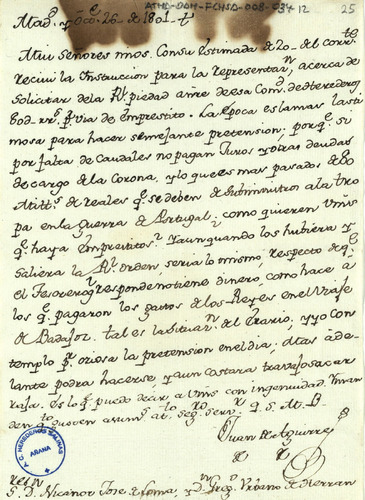 ATHA-DAH-FCHSA-008-034-12 25
Mad.d y Oct.e 26 de 1801.
Mui Señores mios. Con su Estimada de 20 del corr.te
reciui la Instruccion para la Representaz.n acerca de
solicitar dela R.l piedad de esa Com.d de Herederos
por via de Emprestito. La Epoca es la mas lasti
mosa para hacer semejante pretension; porq.e si
por falta de Caudales no pagan Juros y otras deudas
de cargo de la Corona, y lo que es mas pasados de
Mill.s de reales q.e se deben de Subministros a la tro
pa en la Guerra de Portugal; como quieren Vms
q.e haya Emprestitos? Y aun quando los hubiera y
saliera la R.l orden, seria lo mismo, respecto de q.e
el Tesorero responde no tiene dinero, como hace á
los q.e pagaron los gastos de los Reyes en el Viaje
de Badajoz. Tal es la situaz.n del Erario, y yo con
templo p.r oziosa la pretension en el dia; mas ade-
lante podra hacerse, y aun costara trabajo sacar
raja. Es lo q.e puedo decir a Vms con ingenuidad. Y man
den q.to gusten a su m.s at.o seg.o serv.r Q. S. M. B.
Juan de Aguirre
S. D. Nicanor Jose de Loma, y D. Greg.o Urbano de Herran
A. C. HEREDEROS SALINAS
AÑANA